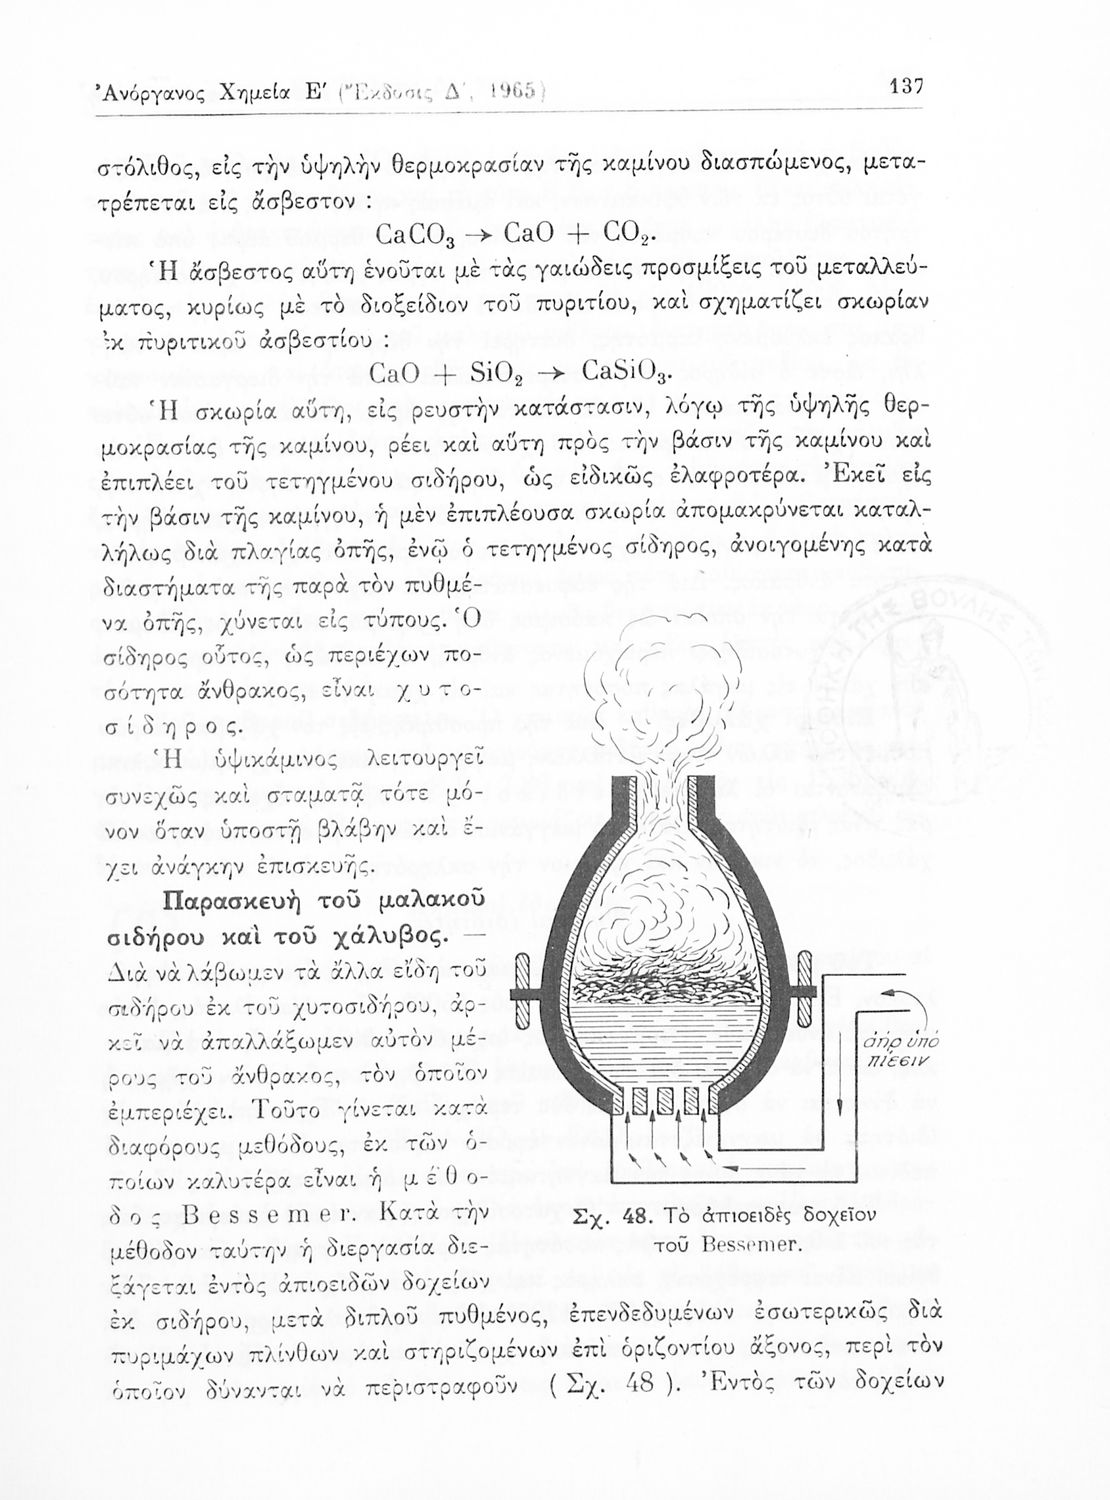 Ἀνόργανος Χημεία Ε′ (Ἔκδοσις Δ′, 1965)
137
στόλιθος, εἰς τὴν ὑψηλὴν θερμοκρασίαν τῆς καμίνου διασπώμενος, μετα-
τρέπεται εἰς ἄσβεστον :
CaCO₃ → CaO + CO₂.
Ἡ ἄσβεστος αὕτη ἑνοῦται μὲ τὰς γαιώδεις προσμίξεις τοῦ μεταλλεύ-
ματος, κυρίως μὲ τὸ διοξείδιον τοῦ πυριτίου, καὶ σχηματίζει σκωρίαν
ἐκ πυριτικοῦ ἀσβεστίου :
CaO + SiO₂ → CaSiO₃.
Ἡ σκωρία αὕτη, εἰς ρευστὴν κατάστασιν, λόγῳ τῆς ὑψηλῆς θερ-
μοκρασίας τῆς καμίνου, ρέει καὶ αὕτη πρὸς τὴν βάσιν τῆς καμίνου καὶ
ἐπιπλέει τοῦ τετηγμένου σιδήρου, ὡς εἰδικῶς ἐλαφροτέρα. Ἐκεῖ εἰς
τὴν βάσιν τῆς καμίνου, ἡ μὲν ἐπιπλέουσα σκωρία ἀπομακρύνεται καταλ-
λήλως διὰ πλαγίας ὀπῆς, ἐνῷ ὁ τετηγμένος σίδηρος, ἀνοιγομένης κατὰ
διαστήματα τῆς παρὰ τὸν πυθμέ-
να ὀπῆς, χύνεται εἰς τύπους. Ὁ
σίδηρος οὗτος, ὡς περιέχων πο-
σότητα ἄνθρακος, εἶναι χ υ τ ο-
σ ί δ η ρ ο ς.
Ἡ ὑψικάμινος λειτουργεῖ
συνεχῶς καὶ σταματᾷ τότε μό-
νον ὅταν ὑποστῇ βλάβην καὶ ἔ-
χει ἀνάγκην ἐπισκευῆς.
Παρασκευὴ τοῦ μαλακοῦ
σιδήρου καὶ τοῦ χάλυβος. —
Διὰ νὰ λάβωμεν τὰ ἄλλα εἴδη τοῦ
σιδήρου ἐκ τοῦ χυτοσιδήρου, ἀρ-
κεῖ νὰ ἀπαλλάξωμεν αὐτὸν μέ-
ρους τοῦ ἄνθρακος, τὸν ὁποῖον
ἐμπεριέχει. Τοῦτο γίνεται κατὰ
διαφόρους μεθόδους, ἐκ τῶν ὁ-
ποίων καλυτέρα εἶναι ἡ μ έ θ ο-
δ ο ς B e s s e m e r. Κατὰ τὴν
μέθοδον ταύτην ἡ διεργασία διε-
ξάγεται ἐντὸς ἀπιοειδῶν δοχείων
ἀὴρ ὑπὸ
πίεσιν
Σχ. 48. Τὸ ἀπιοειδὲς δοχεῖον
τοῦ Bessemer.
ἐκ σιδήρου, μετὰ διπλοῦ πυθμένος, ἐπενδεδυμένων ἐσωτερικῶς διὰ
πυριμάχων πλίνθων καὶ στηριζομένων ἐπὶ ὁριζοντίου ἄξονος, περὶ τὸν
ὁποῖον δύνανται νὰ περιστραφοῦν ( Σχ. 48 ). Ἐντὸς τῶν δοχείων